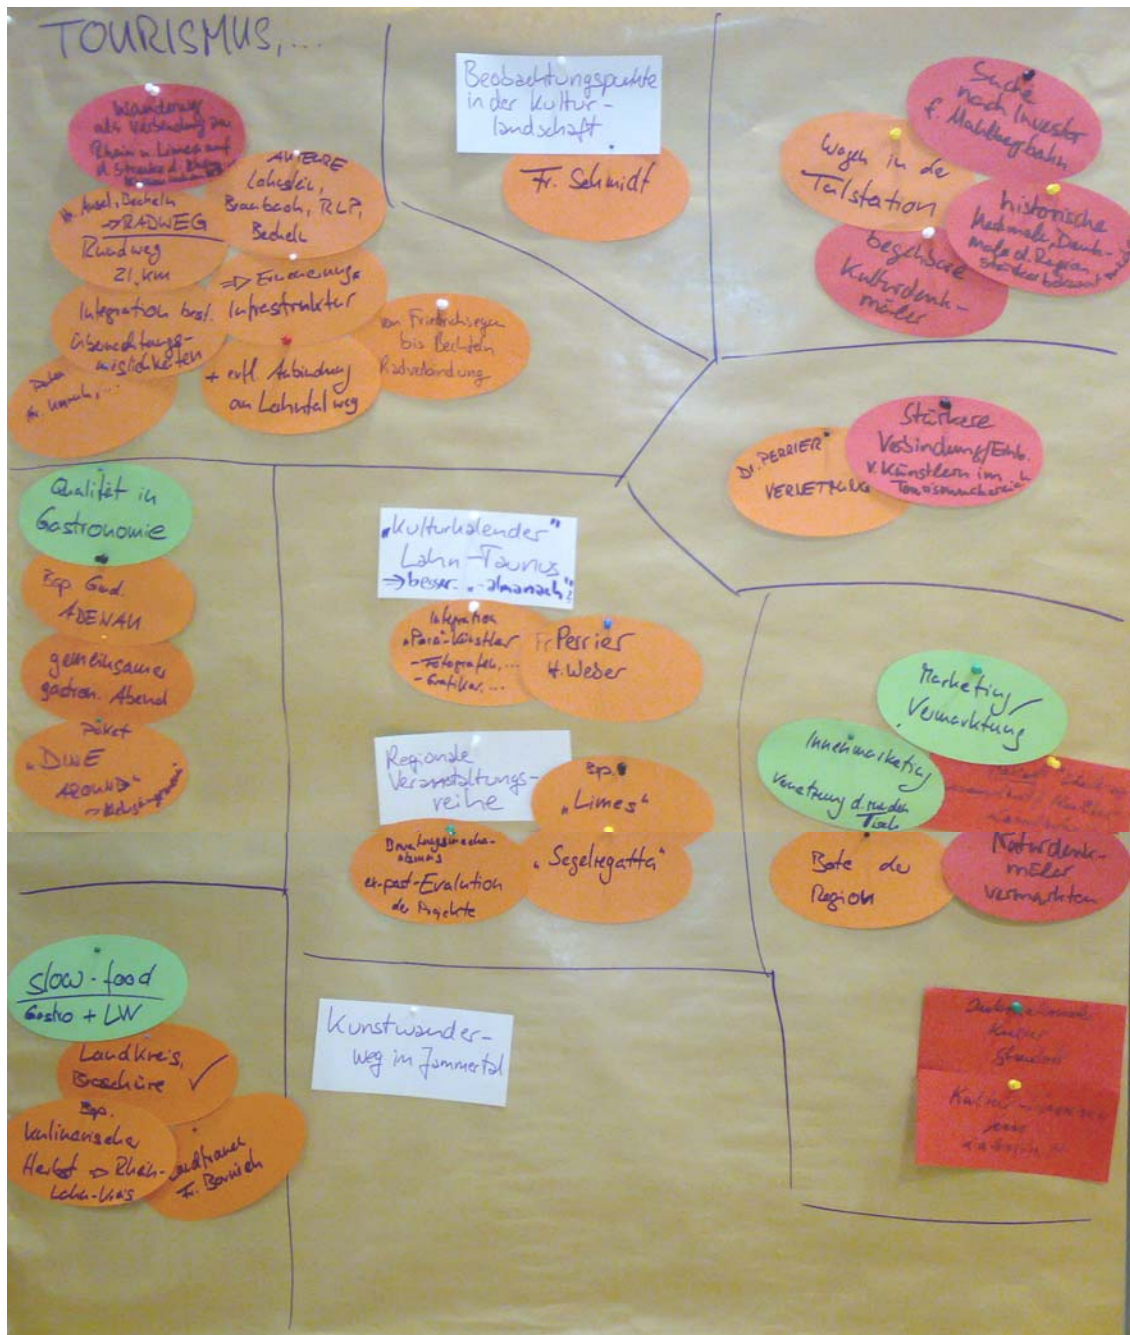 TOURISMUS,...
Wanderweg
als Verbindung zw.
Rhein u. Limes auf
AKTEURE
Lahnstein,
Braubach, RLP,
Becheln
→ RADWEG
Rundweg
21 km
⇒ Erneuerung
Infrastruktur
Integration best.
Übernachtungs-
möglichkeiten
+ evtl. Anbindung
an Lahntalweg
von Friedrichssegen
bis Becheln
Radverbindung
Beobachtungspunkte
in der Kultur-
landschaft
Fr. Schmidt
Suche
nach Investor
f. Mahlbergbahn
Wagen in der
Talstation
historische
Merkmale, Denk-
male d. Region
begehbare
Kulturdenk-
mäler
Stärkere
Verbindung/Einb.
v. Künstlern im
Tourismusbereich
Dr. PERRIER
VERNETZUNG
Qualität in
Gastronomie
Bsp. Gmd.
ADENAU
gemeinsamer
gastron. Abend
Paket
"DINE
AROUND"
„Kulturkalender"
Lahn-Taunus
⇒ besser: „-almanach"?
Integration
„Para"-Künstler
- Fotografen,...
- Grafiker,...
Fr. Perrier
H. Weber
Regionale
Veranstaltungs-
reihe
Bsp.
„Limes"
„Segelregatta"
ex-post-Evalution
der Projekte
Marketing/
Vermarktung
Innenmarketing
Vernetzung d. runden
Tisch
Bote der
Region
Naturdenk-
mäler
vermarkten
slow-food
Gastro + LW
Landkreis,
Broschüre ✓
Bsp.
kulinarischer
Herbst ⇒ Rhein-
Lahn-Kreis
Landfrauen
Kunstwander-
weg im Jammertal